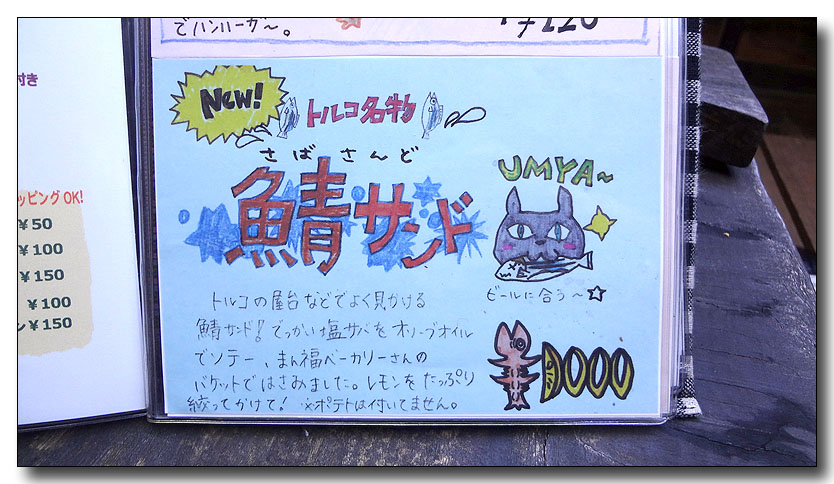 でハンバーガ〜。
付き
ッピングOK!
¥50
¥100
¥150
¥100
ン¥150
New!
トルコ名物
さばさんど
鯖サンド
UMYA〜
ビールに合う〜☆
トルコの屋台などでよく見かける
鯖サンド!でっかい塩サバをオリーブオイル
でソテー、まん福ベーカリーさんの
バケットではさみました。レモンをたっぷり
絞ってかけて! ※ポテトは付いてません。